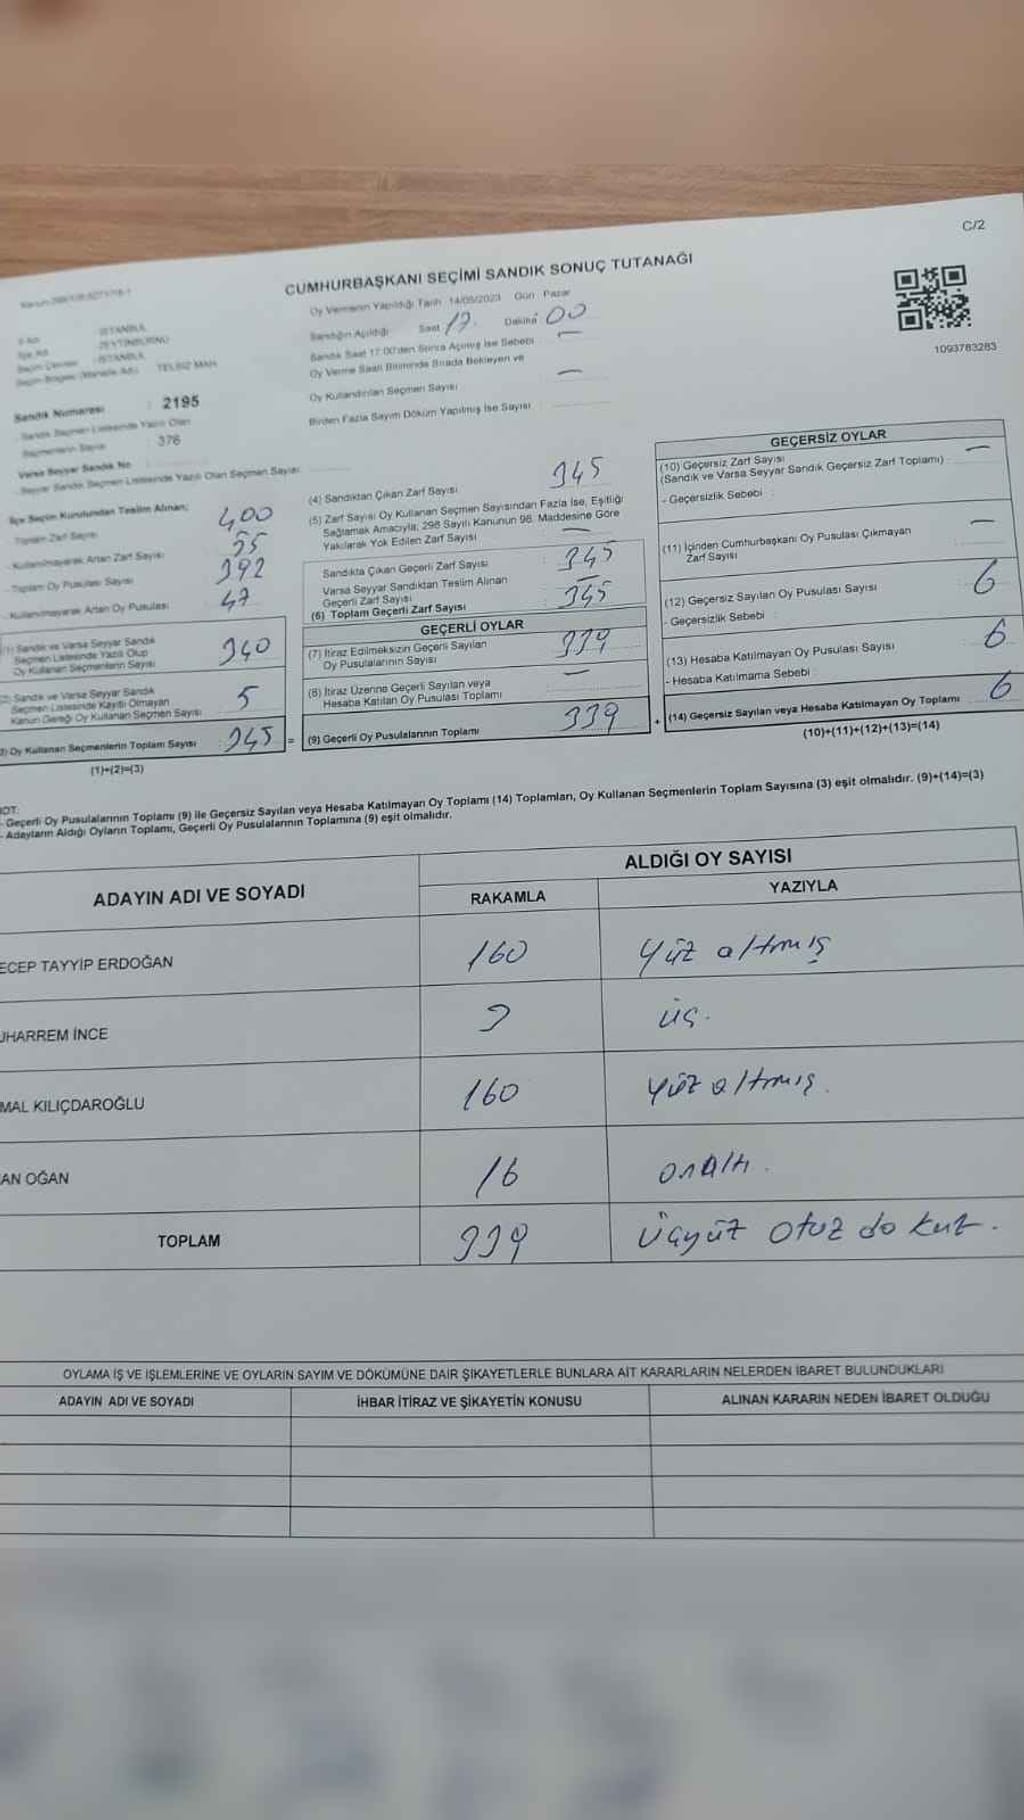 C/2
CUMHURBAŞKANI SEÇİMİ SANDIK SONUÇ TUTANAĞI
Oy Vermenin Yapıldığı Tarih 14/05/2023 Gün Pazar
Sandığın Açıldığı Saat 17. Dakika 00
Sandık Saat 17:00'den Sonra Açılmış İse Sebebi —
Oy Verme Saati Bitiminde Sırada Bekleyen ve
Oy Kullandırılan Seçmen Sayısı —
Birden Fazla Sayım Döküm Yapılmış İse Sayısı
1093783283
İSTANBUL
ZEYTİNBURNU
İSTANBUL
TELSİZ MAH.
Sandık Numarası : 2195
Sandık Seçmen Listesinde Yazılı Olan
Seçmenlerin Sayısı : 376
Varsa Seyyar Sandık No
Seyyar Sandık Seçmen Listesinde Yazılı Olan Seçmen Sayısı
İlçe Seçim Kurulundan Teslim Alınan;
Toplam Zarf Sayısı 400
Kullanılmayarak Artan Zarf Sayısı 55
Toplam Oy Pusulası Sayısı 392
Kullanılmayarak Artan Oy Pusulası 47
(1) Sandık ve Varsa Seyyar Sandık
Seçmen Listesinde Yazılı Olup
Oy Kullanan Seçmenlerin Sayısı 340
(2) Sandık ve Varsa Seyyar Sandık
Seçmen Listesinde Kayıtlı Olmayan
Kanun Gereği Oy Kullanan Seçmen Sayısı 5
3) Oy Kullanan Seçmenlerin Toplam Sayısı : 345 =
(1)+(2)=(3)
(4) Sandıktan Çıkan Zarf Sayısı 345
(5) Zarf Sayısı Oy Kullanan Seçmen Sayısından Fazla İse, Eşitliği
Sağlamak Amacıyla; 298 Sayılı Kanunun 98. Maddesine Göre
Yakılarak Yok Edilen Zarf Sayısı : —
Sandıkta Çıkan Geçerli Zarf Sayısı : 345
Varsa Seyyar Sandıktan Teslim Alınan
Geçerli Zarf Sayısı —
(6) Toplam Geçerli Zarf Sayısı : 345
GEÇERLİ OYLAR
(7) İtiraz Edilmeksizin Geçerli Sayılan
Oy Pusulalarının Sayısı 339
(8) İtiraz Üzerine Geçerli Sayılan veya
Hesaba Katılan Oy Pusulası Toplamı —
(9) Geçerli Oy Pusulalarının Toplamı 339 +
GEÇERSİZ OYLAR
(10) Geçersiz Zarf Sayısı
(Sandık ve Varsa Seyyar Sandık Geçersiz Zarf Toplamı) : —
- Geçersizlik Sebebi :
(11) İçinden Cumhurbaşkanı Oy Pusulası Çıkmayan
Zarf Sayısı —
(12) Geçersiz Sayılan Oy Pusulası Sayısı 6
- Geçersizlik Sebebi :
(13) Hesaba Katılmayan Oy Pusulası Sayısı 6
- Hesaba Katılmama Sebebi :
(14) Geçersiz Sayılan veya Hesaba Katılmayan Oy Toplamı 6
(10)+(11)+(12)+(13)=(14)
- Geçerli Oy Pusulalarının Toplamı (9) ile Geçersiz Sayılan veya Hesaba Katılmayan Oy Toplamı (14) Toplamları, Oy Kullanan Seçmenlerin Toplam Sayısına (3) eşit olmalıdır. (9)+(14)=(3)
- Adayların Aldığı Oyların Toplamı, Geçerli Oy Pusulalarının Toplamına (9) eşit olmalıdır.
ADAYIN ADI VE SOYADI ALDIĞI OY SAYISI
RAKAMLA YAZIYLA
ECEP TAYYİP ERDOĞAN 160 yüz altmış
UHARREM İNCE 3 üç.
MAL KILIÇDAROĞLU 160 yüz altmış.
AN OĞAN 16 onaltı.
TOPLAM 339 üçyüz otuz dokuz.
OYLAMA İŞ VE İŞLEMLERİNE VE OYLARIN SAYIM VE DÖKÜMÜNE DAİR ŞİKAYETLERLE BUNLARA AİT KARARLARIN NELERDEN İBARET BULUNDUKLARI
ADAYIN ADI VE SOYADI İHBAR İTİRAZ VE ŞİKAYETİN KONUSU ALINAN KARARIN NEDEN İBARET OLDUĞU